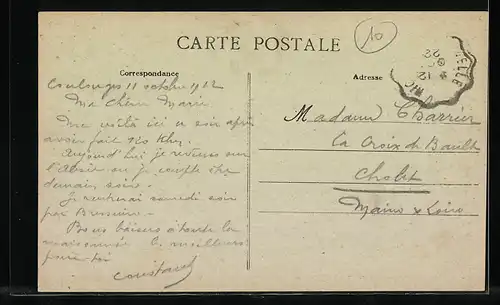 CARTE POSTALE
10
Correspondance
Adresse
Coulonges 11 octobre 1912
Ma chère Marie
Me voilà ici ce soir après
avoir fait 120 Khm.
Aujourd'hui je retourne sur
l'Absie où je compte être
demain soir.
Je rentrerai samedi soir
par Bressuire.
Bons baisers à toute la
maisonnée & meilleurs
pour toi
Constant
Madame Charrier
La Croix de Bault
Cholet
Maine & Loire